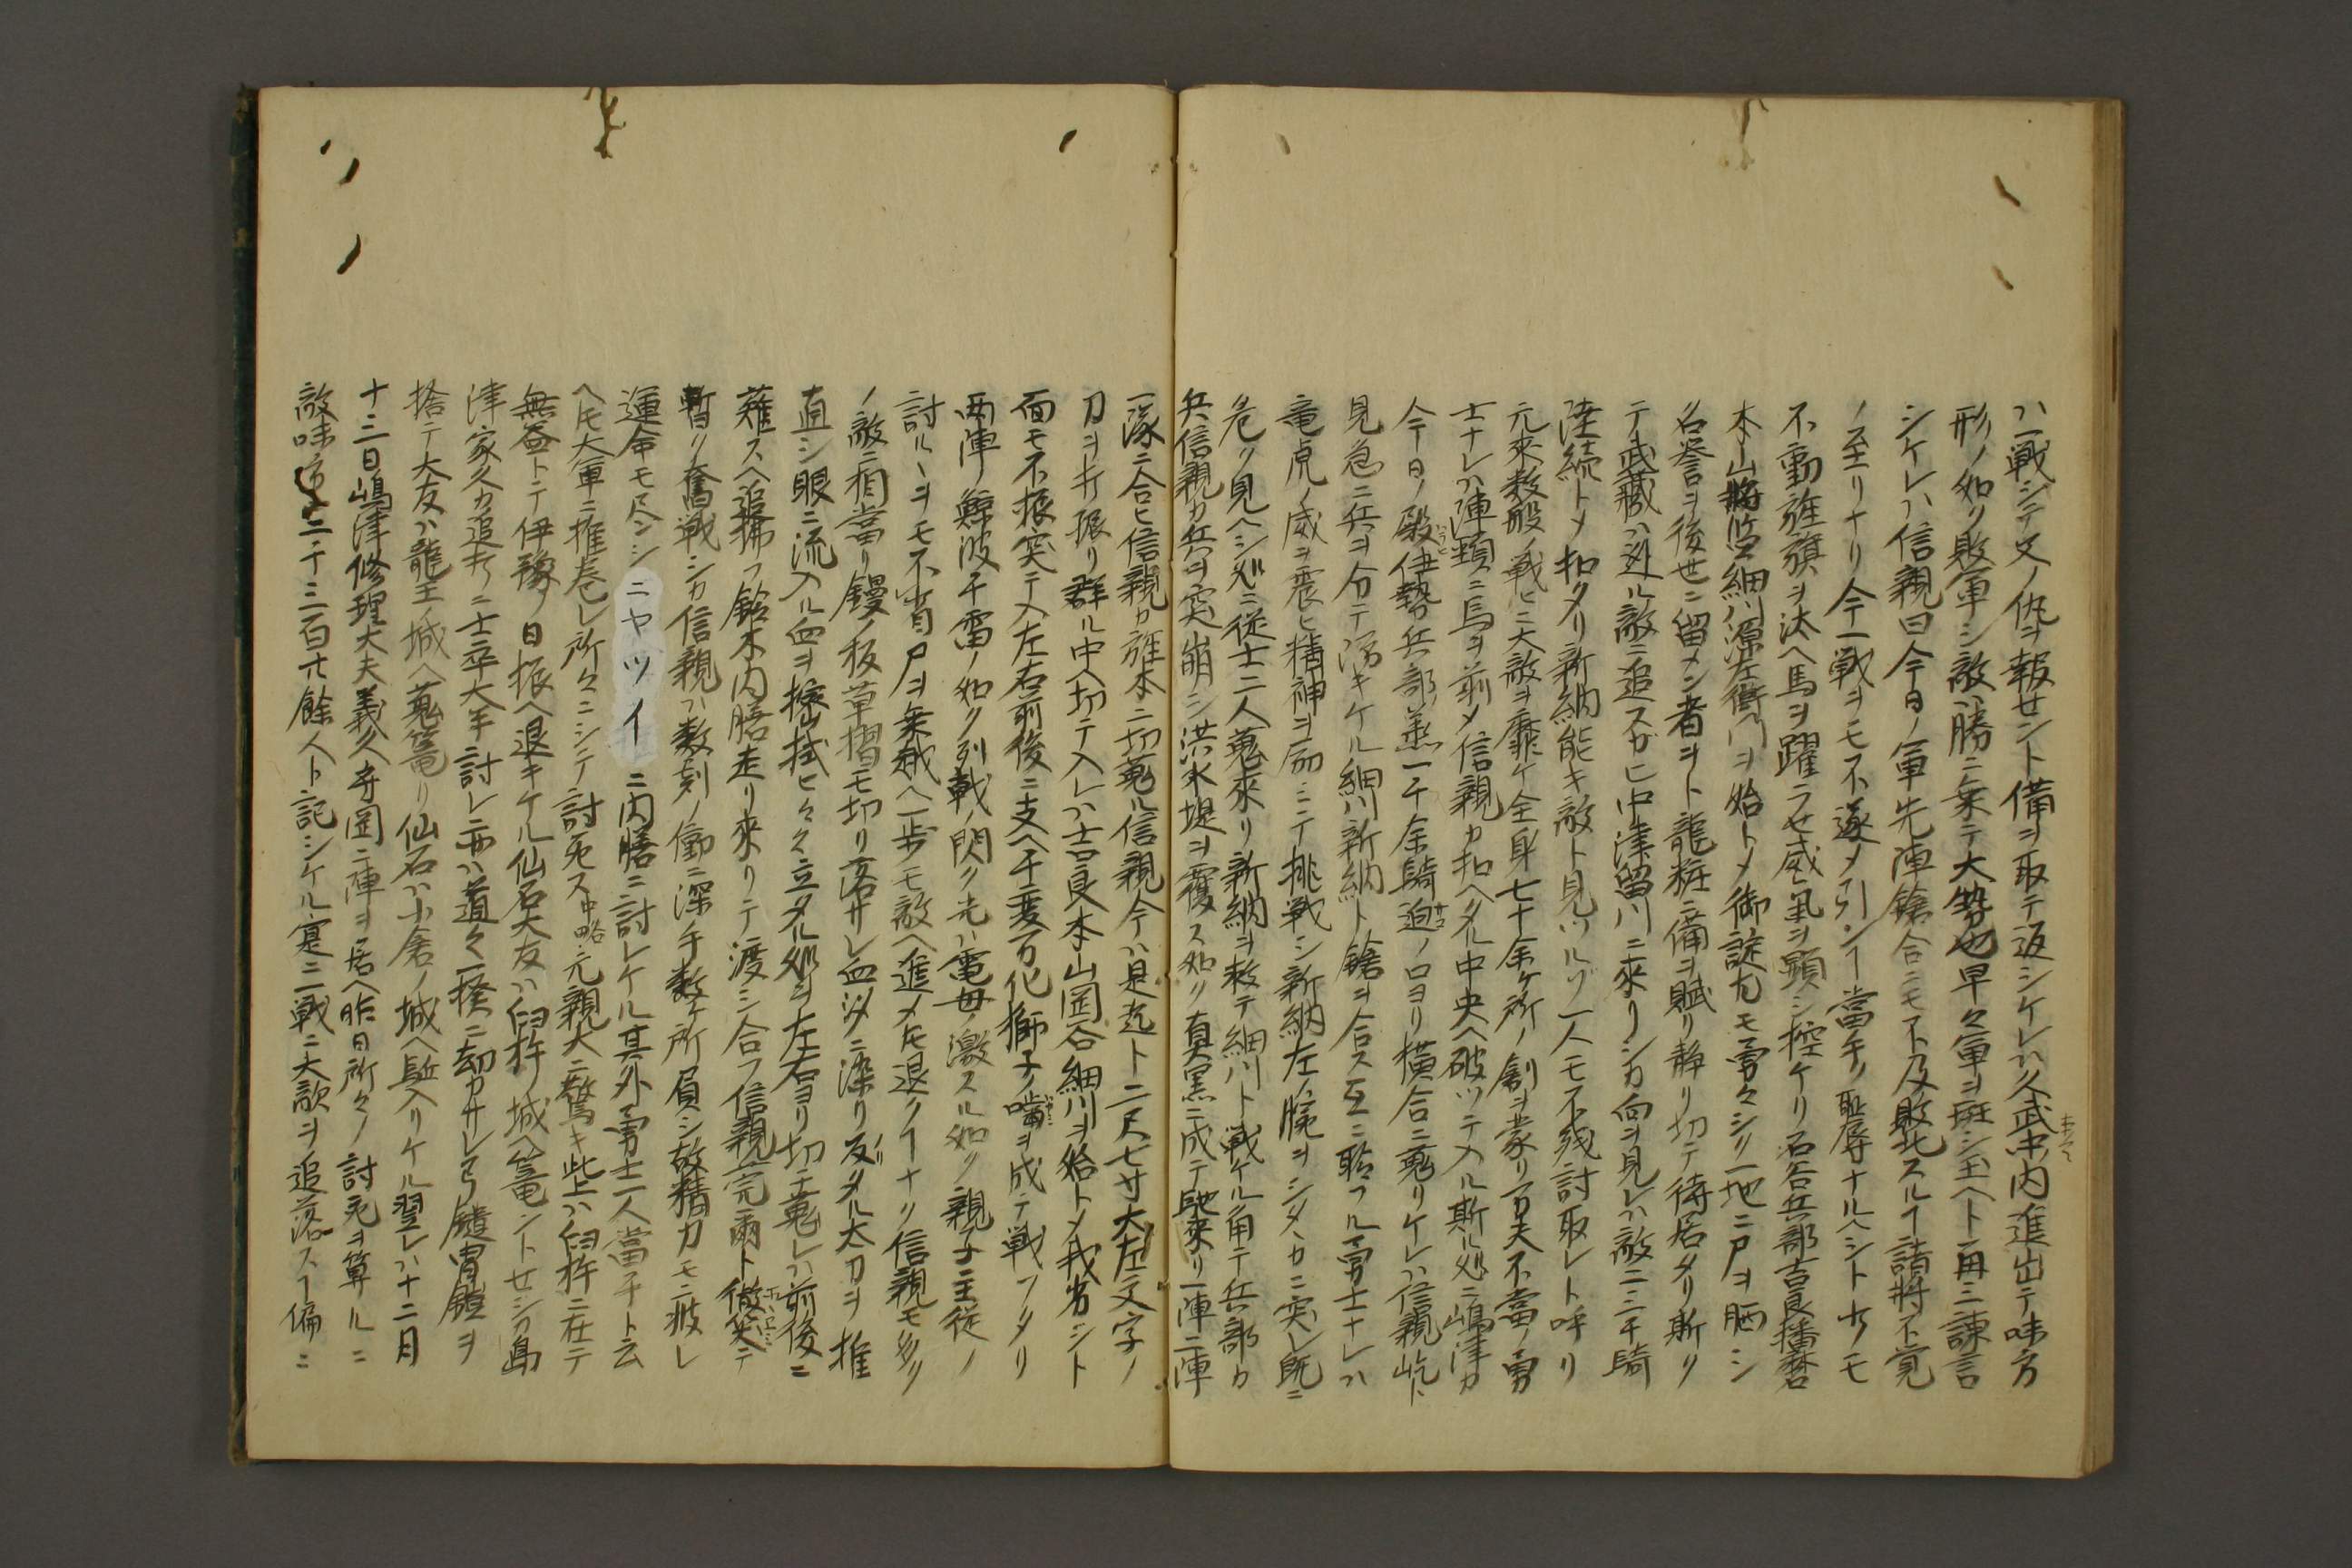 ハ一戦シテ父ノ仇ヲ報セント備ヲ取テ返シケレハ久武内進出テ味方
形ノ如ク敗軍シ敵ハ勝ニ乗テ大勢也早々軍ヲ班シ玉ヘト再三諫言
シケレハ信親曰今日ノ軍先陣鎗合ニモ不及敗北スルヿ諸将不覚
ノ至リナリ今一戦ヲモ不遂メ引ンヿ當手ノ恥辱ナルヘシトナノモ
不動旌旗ヲ汰ヘ馬ヲ躍ラせ威氣ヲ顕シ控ケリ石谷兵部吉良播磨
本山将監細川源左衛門ヲ始トメ御諚尤モ勇々シク一地ニ尸ヲ晒シ
名誉ヲ後せニ留メン者ヲト龍粧ニ備ヲ賦リ静リ切テ待居タリ斯リ
テ武蔵ハ迯ル敵ニ追スガヒ中津留川ニ來リシカ向ヲ見レハ敵二三千騎
陸続トメ扣タリ新納能キ敵ト見ツルゾ一人モ不残討取レト呼リ
元來数般ノ戦ヒニ大敵ヲ靡ケ全身七十余ケ所ノ創ヲ蒙リ万夫不當ノ勇
士ナレハ陣頭ニ馬ヲ前メ信親カ扣ヘタル中央ヘ破ツテ入ル斯ル処ニ嶋津カ
今日ノ殿伊勢兵部ハ恙一千余騎迫ノ口ヨリ横合ニ蒐リケレハ信親屹ト
見急ニ兵ヲ分テ防キケル細川新納ト鎗ヲ合ス互ニ聆フル勇士ナレハ
竜虎ノ威ヲ震ヒ精神ヲ励ミテ挑戦シ新納左ノ腕ヲシタヽカニ突レ既ニ
危ク見ヘシ処ニ従士二人蒐來リ新納ヲ救テ細川ト戦ケル角テ兵部カ
兵信親カ兵ヲ突崩シ洪水堤ヲ覆ス如ク真黒ニ成テ馳來リ一陣二陣
一隊ニ合ヒ信親カ旌本ニ切蒐ル信親今ハ是迄ト二尺七寸大左文字ノ
刀ヲ打振リ群ル中ヘ切テ入レハ吉良本山岡谷細川ヲ始トメ我劣ジト
面モ不振突テ入左右前後ニ支ヘ千変万化獅子ノ噛ヲ成テ戦フタリ
両陣ノ鯨波千雷ノ如ク列戟ノ閃ク光ハ電母ノ激スル如ク親子主従ノ
討ルヽヲモ不省尸ヲ乗越ヘ一歩モ敵ヘ進メ𪜈退クヿナク信親モ多ク
ノ敵ニ相當リ鏝ノ板草摺モ切リ落サレ血汐ニ染リ反タル太刀ヲ推
直シ眼ニ流入ル血ヲ搔拭ヒ々々立タル処ヲ左右ヨリ切テ蒐レハ前後ニ
薙スヘ追拂フ鈴木内膳走リ來リテ渡シ合フ信親莞爾ト微笑テ
暫ク奮戦シカ信親ハ数刻ノ働ニ深手数ケ所負シ故精力モニ疲レ
運命モ尽シニヤツイニ内膳ニ討レケル其外勇士一人當千ト云
ヘ𪜈大軍ニ推巻レ所々ニシテ討死ス中略元親大ニ驚キ此上ハ臼杵ニ在テ
無益トテ伊豫ノ日振ヘ退キケル仙石大友ハ臼杵ノ城ヘ篭ントせシカ島
津家久カ追打ニ士卒大半討レ亦ハ道々一揆ニ劫カサレ弓鎗冑鎧ヲ
捨テ大友ハ龍王ノ城ヘ蒐篭リ仙石ハ小倉ノ城ヘ逃入リケル翌レハ十二月
十三日嶋津修理大夫義久寺岡ニ陣ヲ居ヘ昨日所々ノ討死ヲ算ルニ
敵味方二千三百廿餘人ト記シケル寔ニ一戦ニ大敵ヲ追落スヿ偏ニ